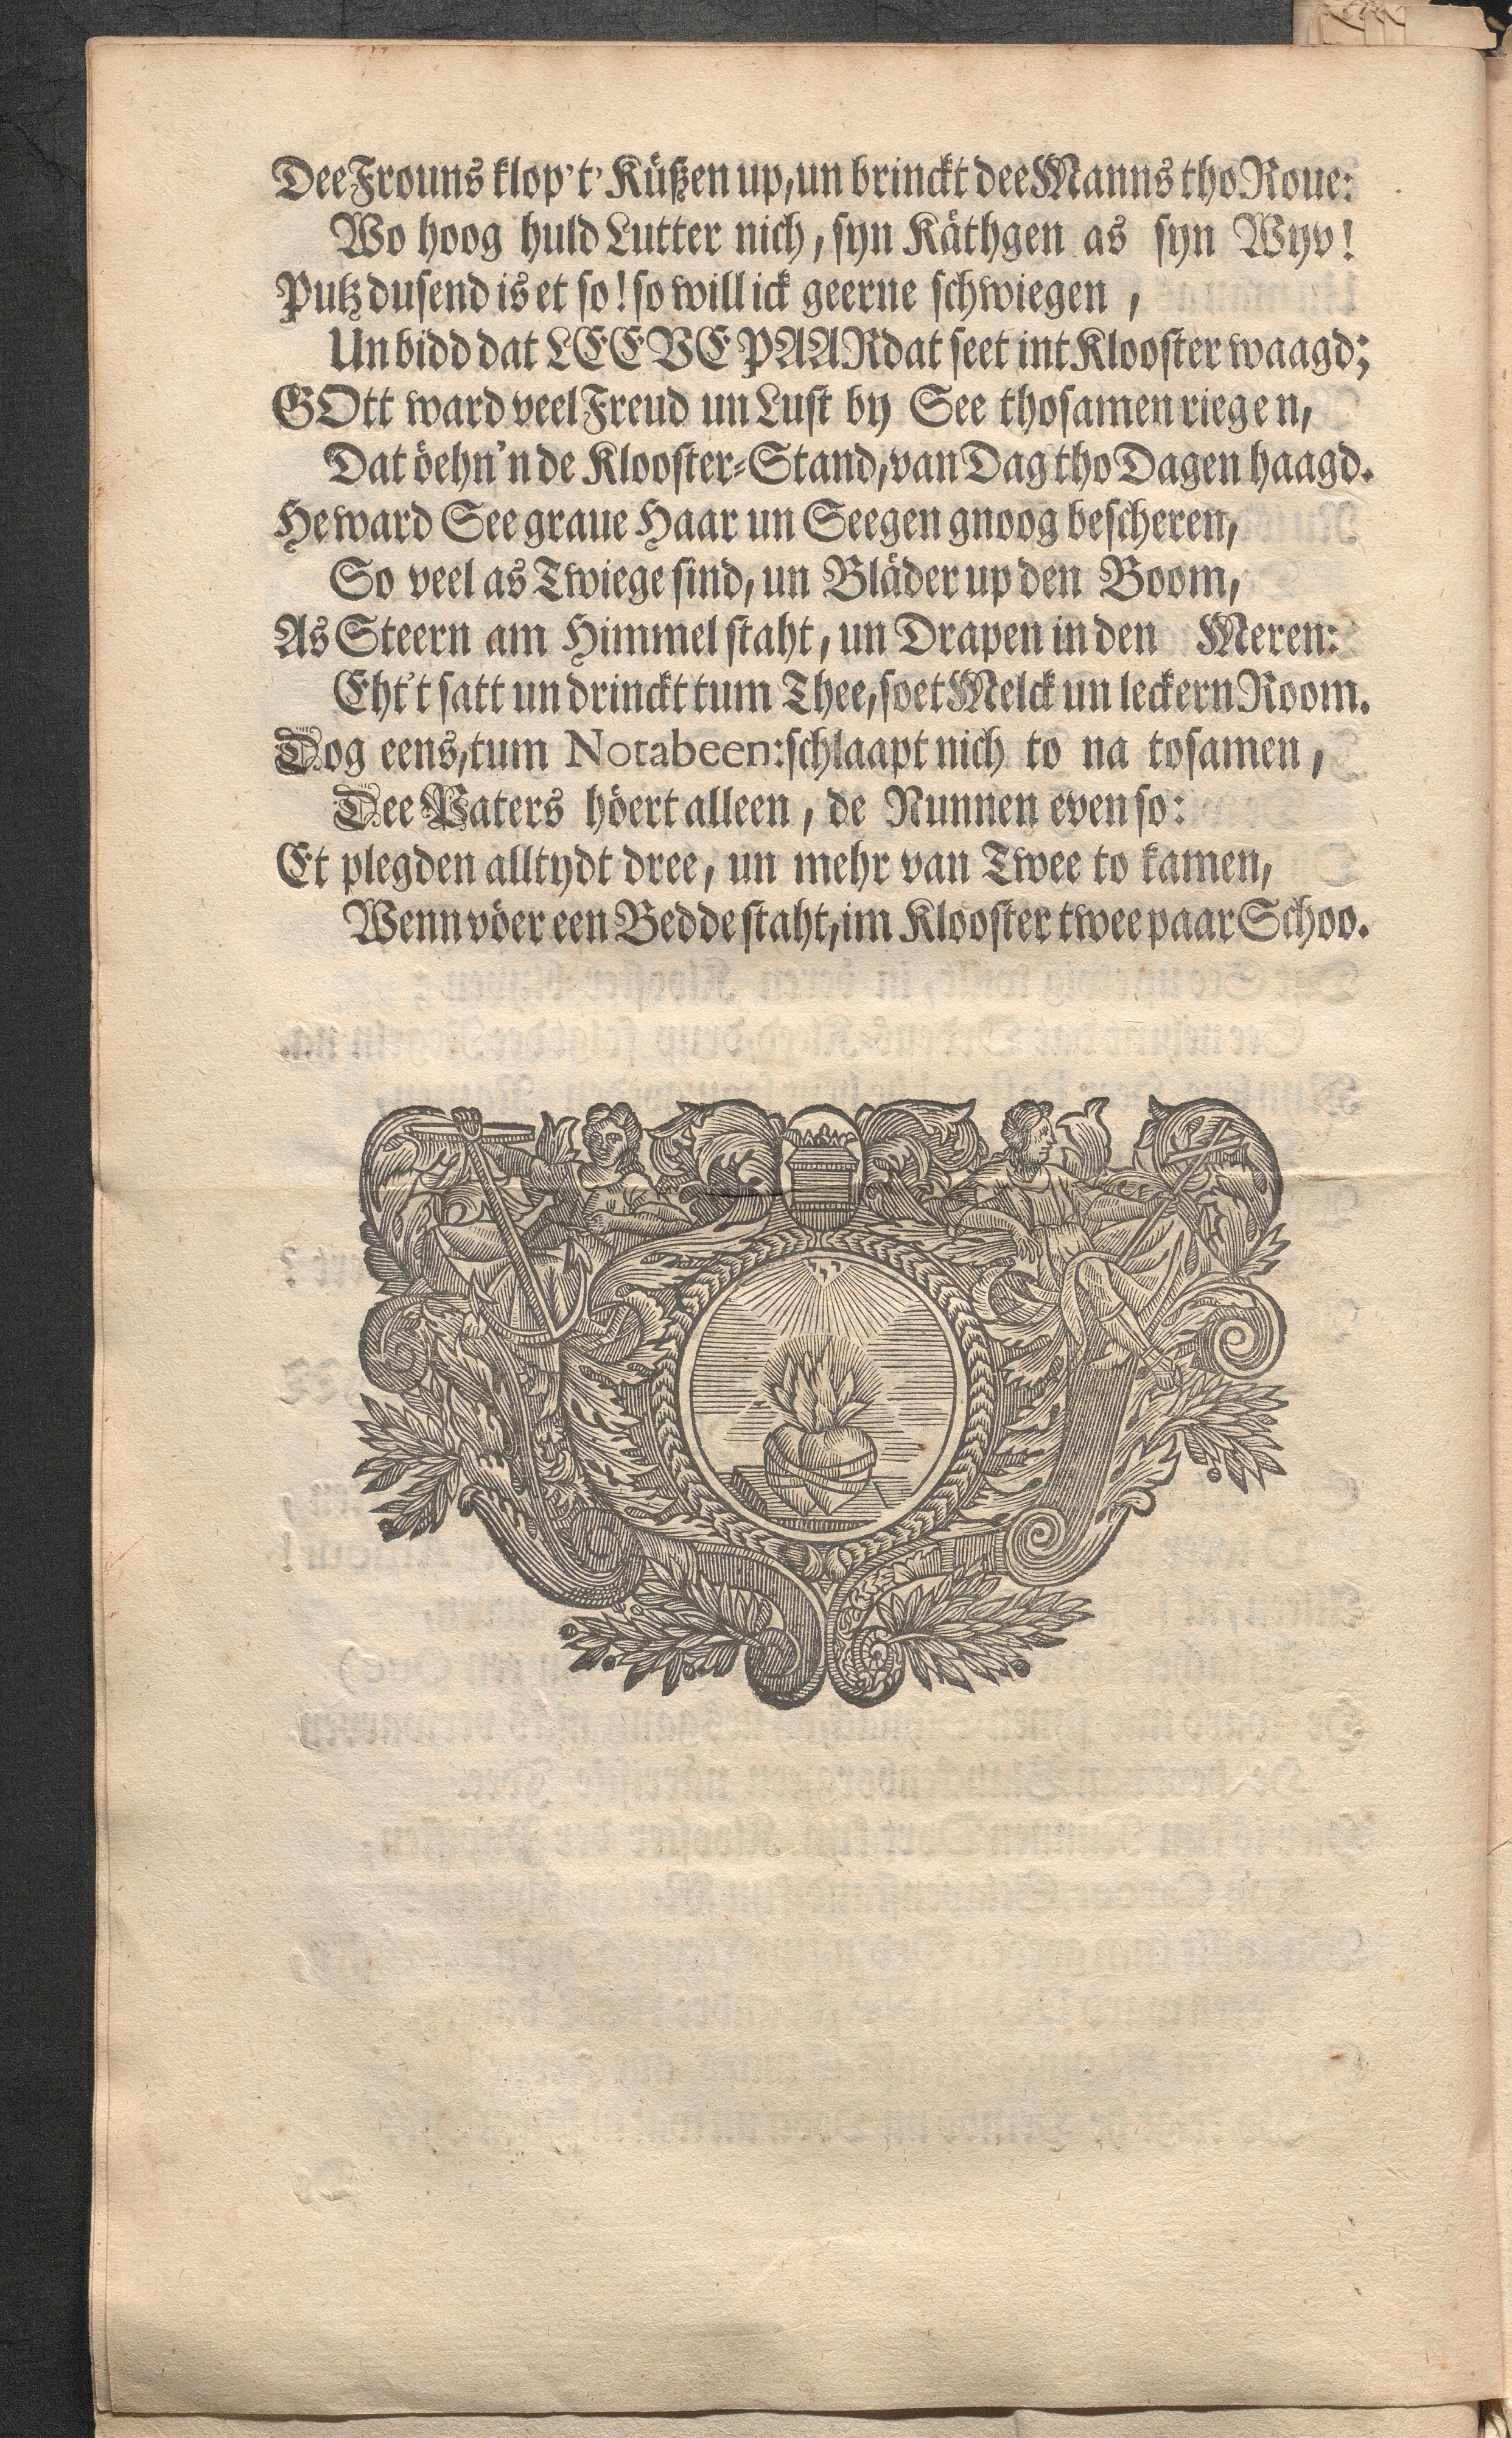 Dee Frouns klop't' Küßen up, un brinckt dee Manns tho Roue:
Wo hoog huld Lutter nich, syn Käthgen as syn Wyv!
Putz dusend is et so! so will ick geerne schwiegen,
Un bidd dat LEEVE PAAR dat seet int Klooster waagd;
GOtt ward veel Freud un Lust by See thosamen riegen,
Dat öehn'n de Klooster-Stand, van Dag tho Dagen haagd.
He ward See graue Haar un Seegen gnoog bescheren,
So veel as Twiege sind, un Bläder up den Boom,
As Steern am Himmel staht, un Drapen in den Meren:
Eht't satt un drinckt tum Thee, soet Melck un leckern Room.
Dog eens, tum Notabeen: schlaapt nich to na tosamen,
Dee Paters höert alleen, de Nunnen even so:
Et plegden alltydt dree, un mehr van Twee to kamen,
Wenn vöer een Bedde staht, im Klooster twee paar Schoo.